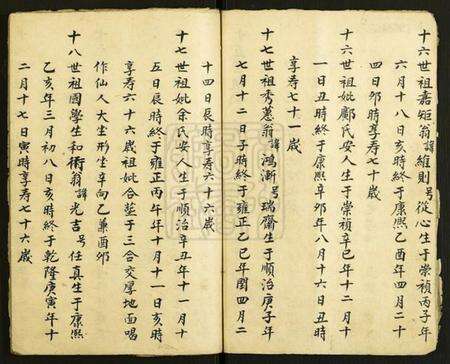 十六世祖嘉矩翁諱維則号從心生于崇禎丙子年
六月十八日亥時終于康熙乙酉年四月二十
四日卯時享寿七十歲
十六世祖妣鄺氏安人生于崇禎辛巳年十二月十
一日丑時終于康熙辛卯年八月十六日丑時
享寿七十一歲
十七世祖秀蔥翁諱鴻漸号瑞齋生于順治庚子年
七月十二日子時終于雍正乙巳年閏四月二
十四日辰時享寿六十六歲
十七世祖妣余氏安人生于順治辛丑年十一月十
五日辰時終于雍正丙午年十月十一日亥時
享寿六十六歲祖妣合塟于三合交厚地面喝
作仙人大坐形坐辛向乙兼酉卯
十八世祖國學生和衛翁諱光吉号任真生于康熙
乙亥年三月初八日亥時終于乾隆庚寅年十
二月十七日寅時享寿七十六歲